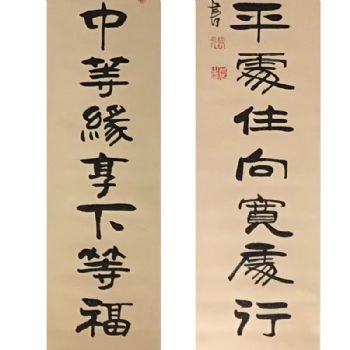 平處住向寬處行
書
中等緣享下等福